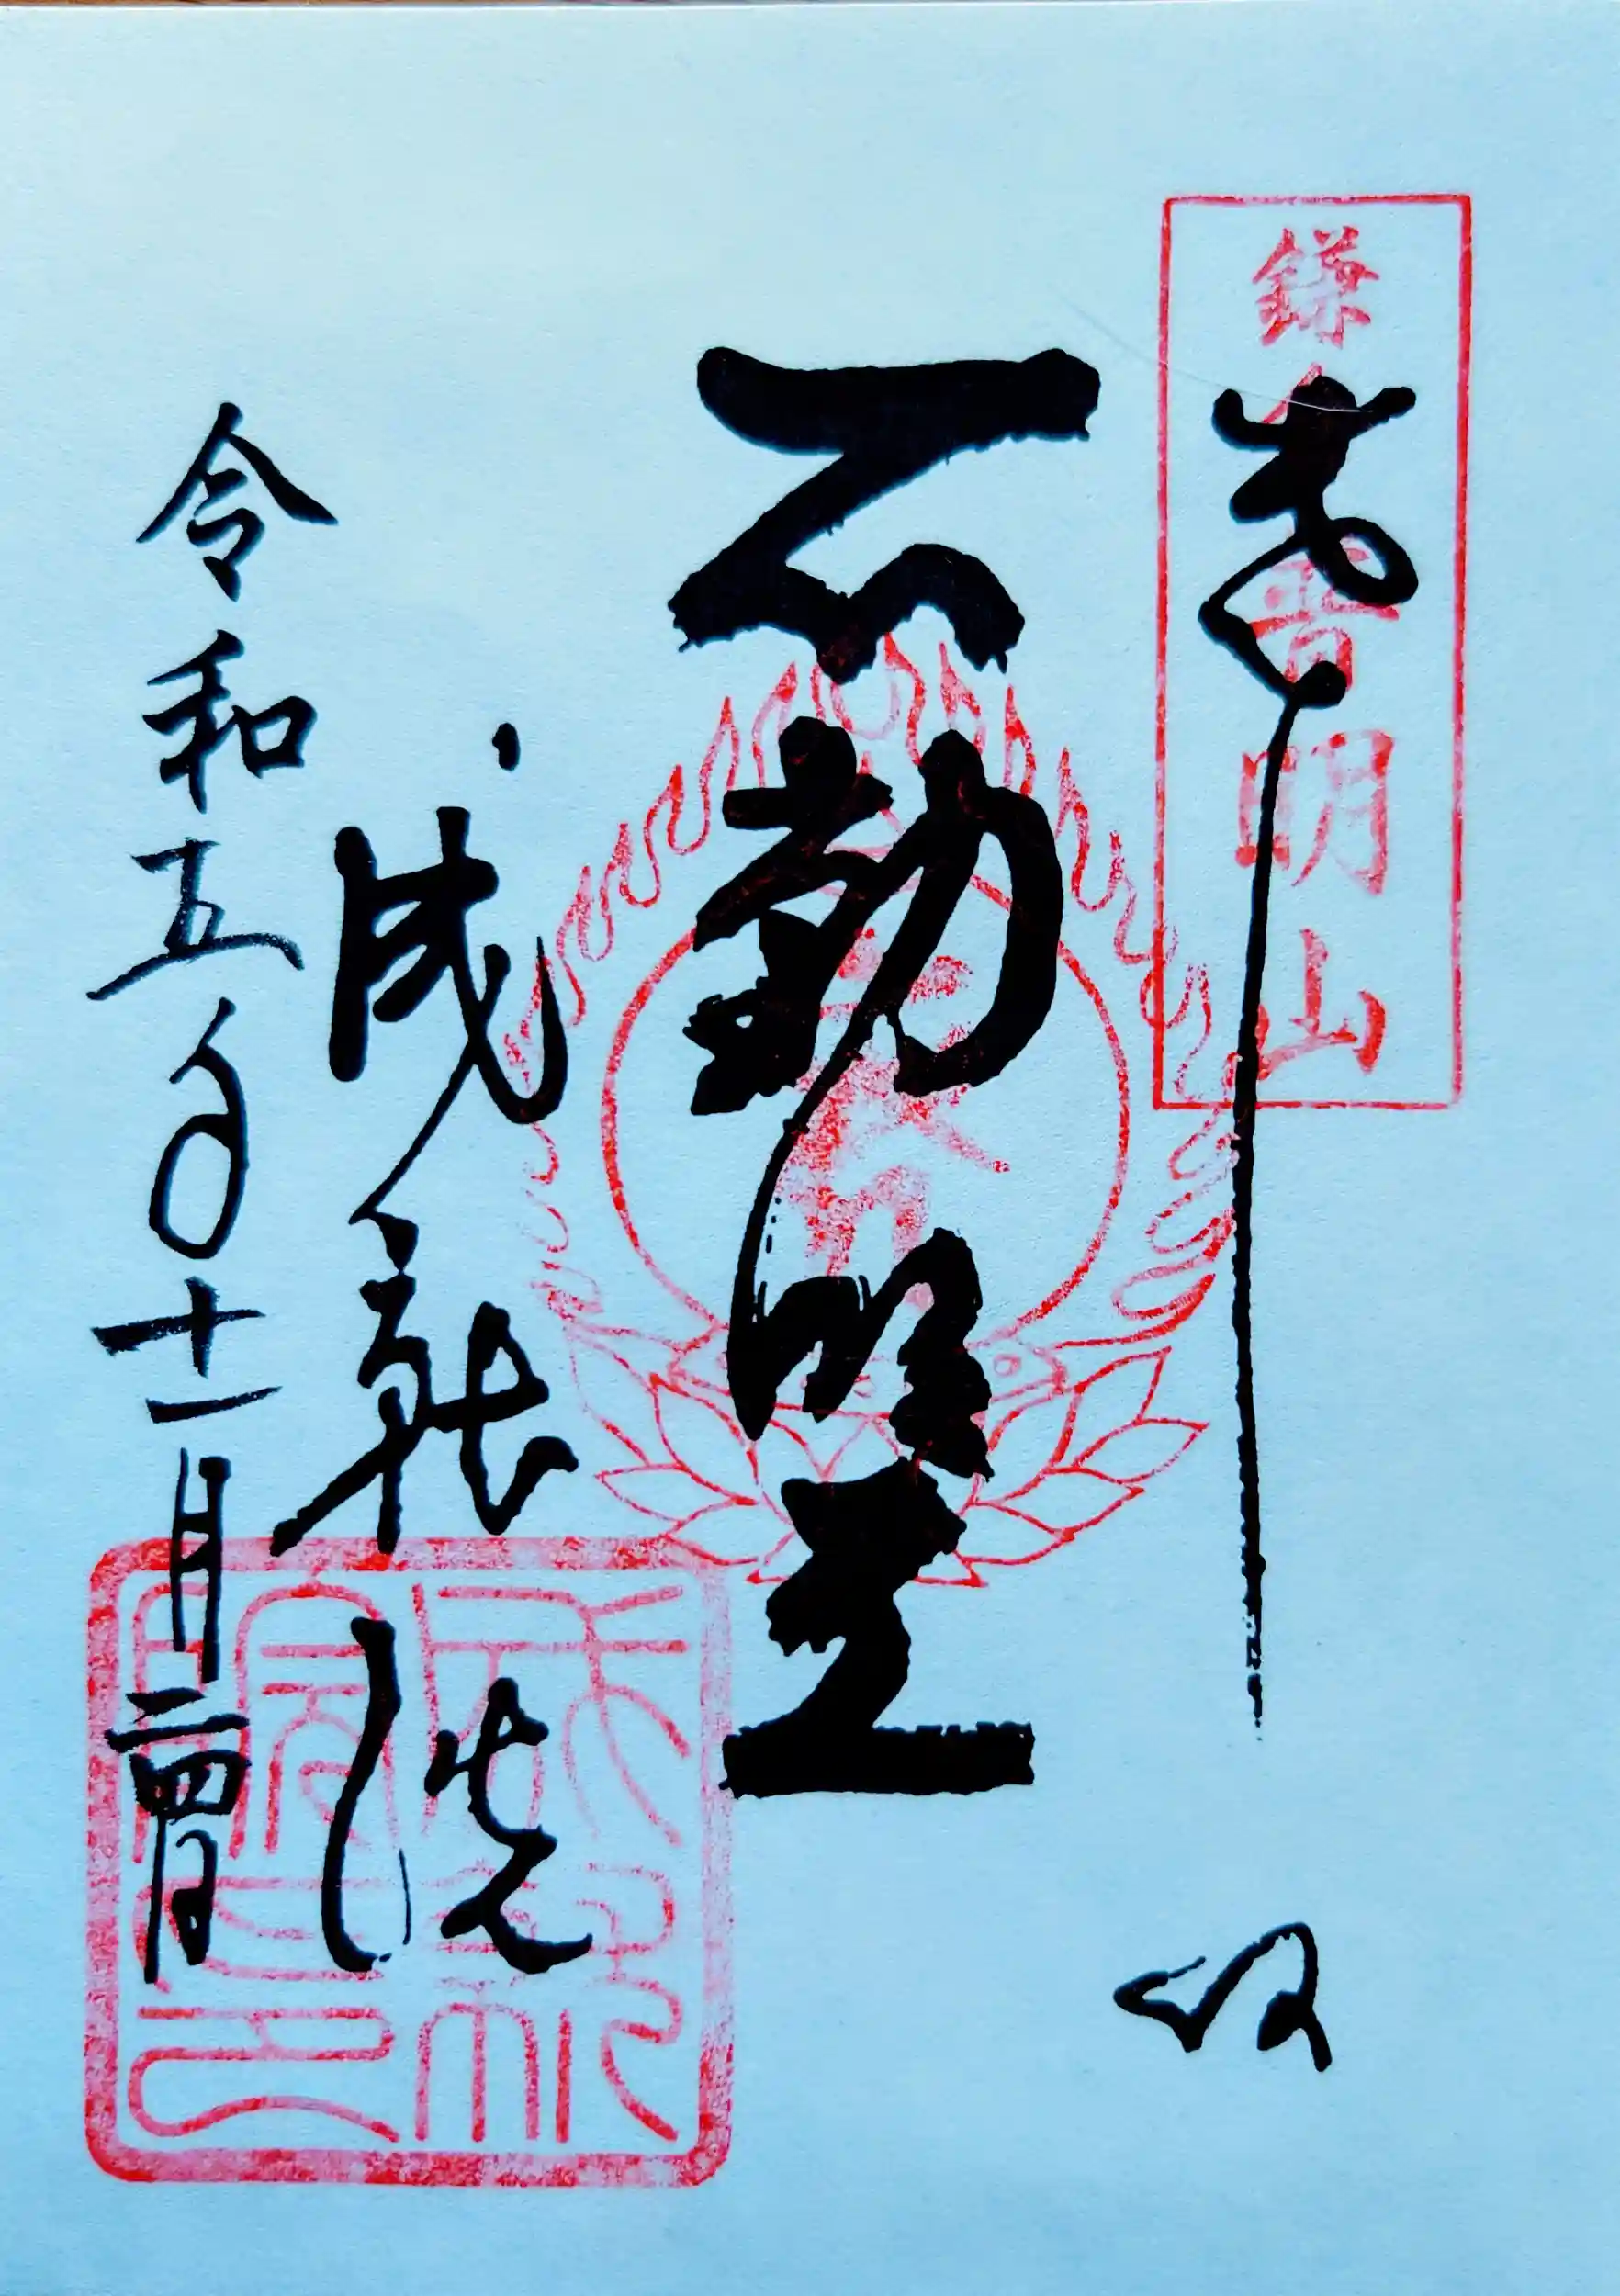 奉拝
鎌倉普明山
不動明王
成就院
令和五年十一月二四日